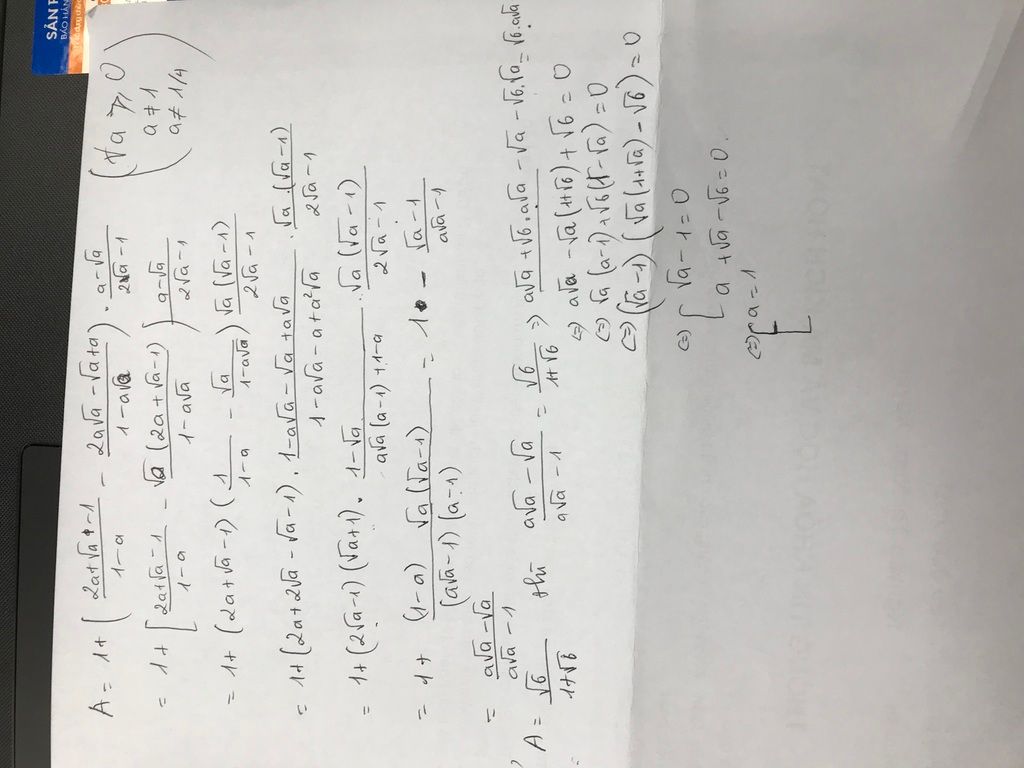 A = 1 + [ (2a+√a-1)/(1-a) - (2a√a - √a + a)/(1-a√a) ) . (a-√a)/(2√a-1) (∀a ⩾ 0
a ≠ 1
a ≠ 1/4)
= 1 + [ (2a+√a-1)/(1-a) - √a(2a+√a-1)/(1-a√a) ) (a-√a)/(2√a-1)
= 1 + (2a+√a-1) ( 1/(1-a) - √a/(1-a√a) ) √a(√a-1)/(2√a-1)
= 1 + (2a+2√a-√a-1) . (1-a√a-√a+a√a)/(1-a√a-a+a²√a) . √a.(√a-1)/(2√a-1)
= 1 + (2√a-1)(√a+1) . (1-√a)/(a√a(a-1)+1-a) . √a(√a-1)/(2√a-1)
= 1 + (1-a) √a(√a-1)/((a√a-1)(a-1)) = 1 - (√a-1)/(a√a-1)
= (a√a-√a)/(a√a-1)
A = √6/(1+√6) thì (a√a-√a)/(a√a-1) = √6/(1+√6) ⇒ a√a+√6.a√a-√a-√6.√a = √6.a√a
⇔ a√a-√a(1+√6)+√6=0
⇔ √a(a-1)+√6(1-√a)=0
⇔ (√a-1)(√a(1+√a)-√6)=0
⇔ [ √a-1=0
a+√a-√6=0
⇔ [ a=1
SẢN P
BẢO HÀN